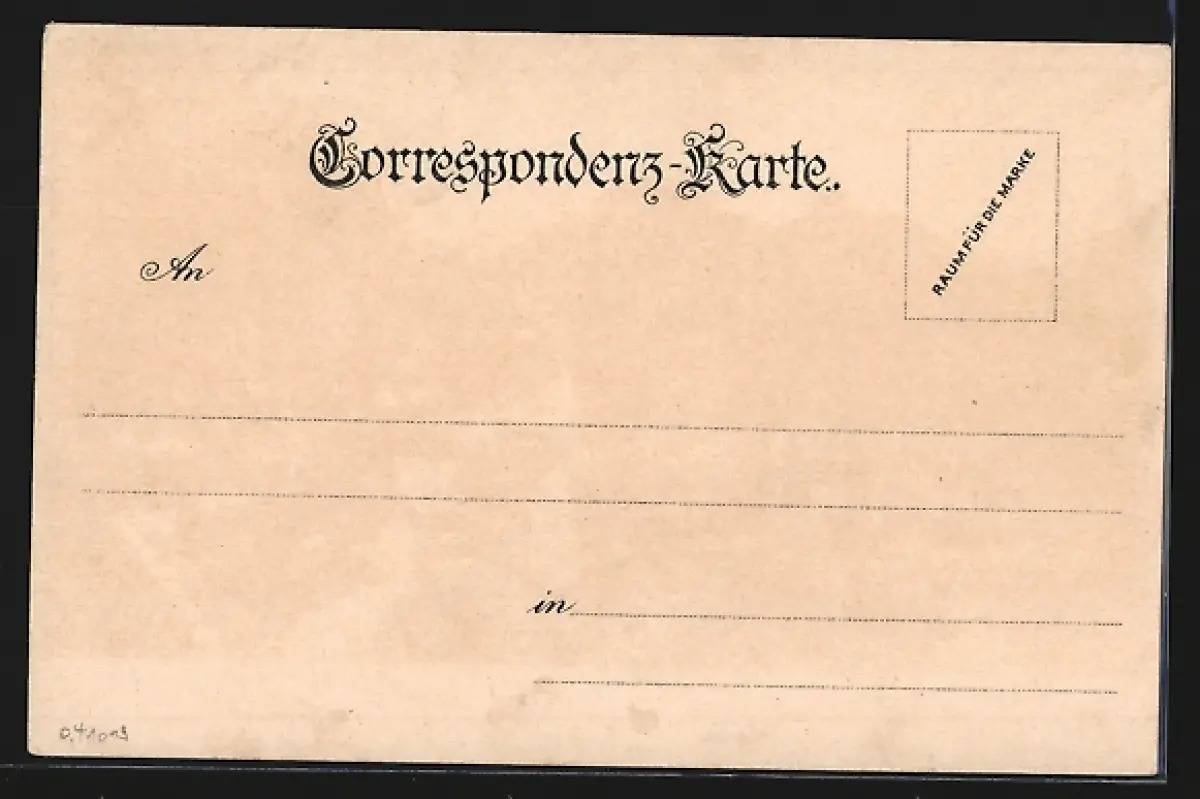 Correspondenz-Karte..
RAUM FÜR DIE MARKE
An
in